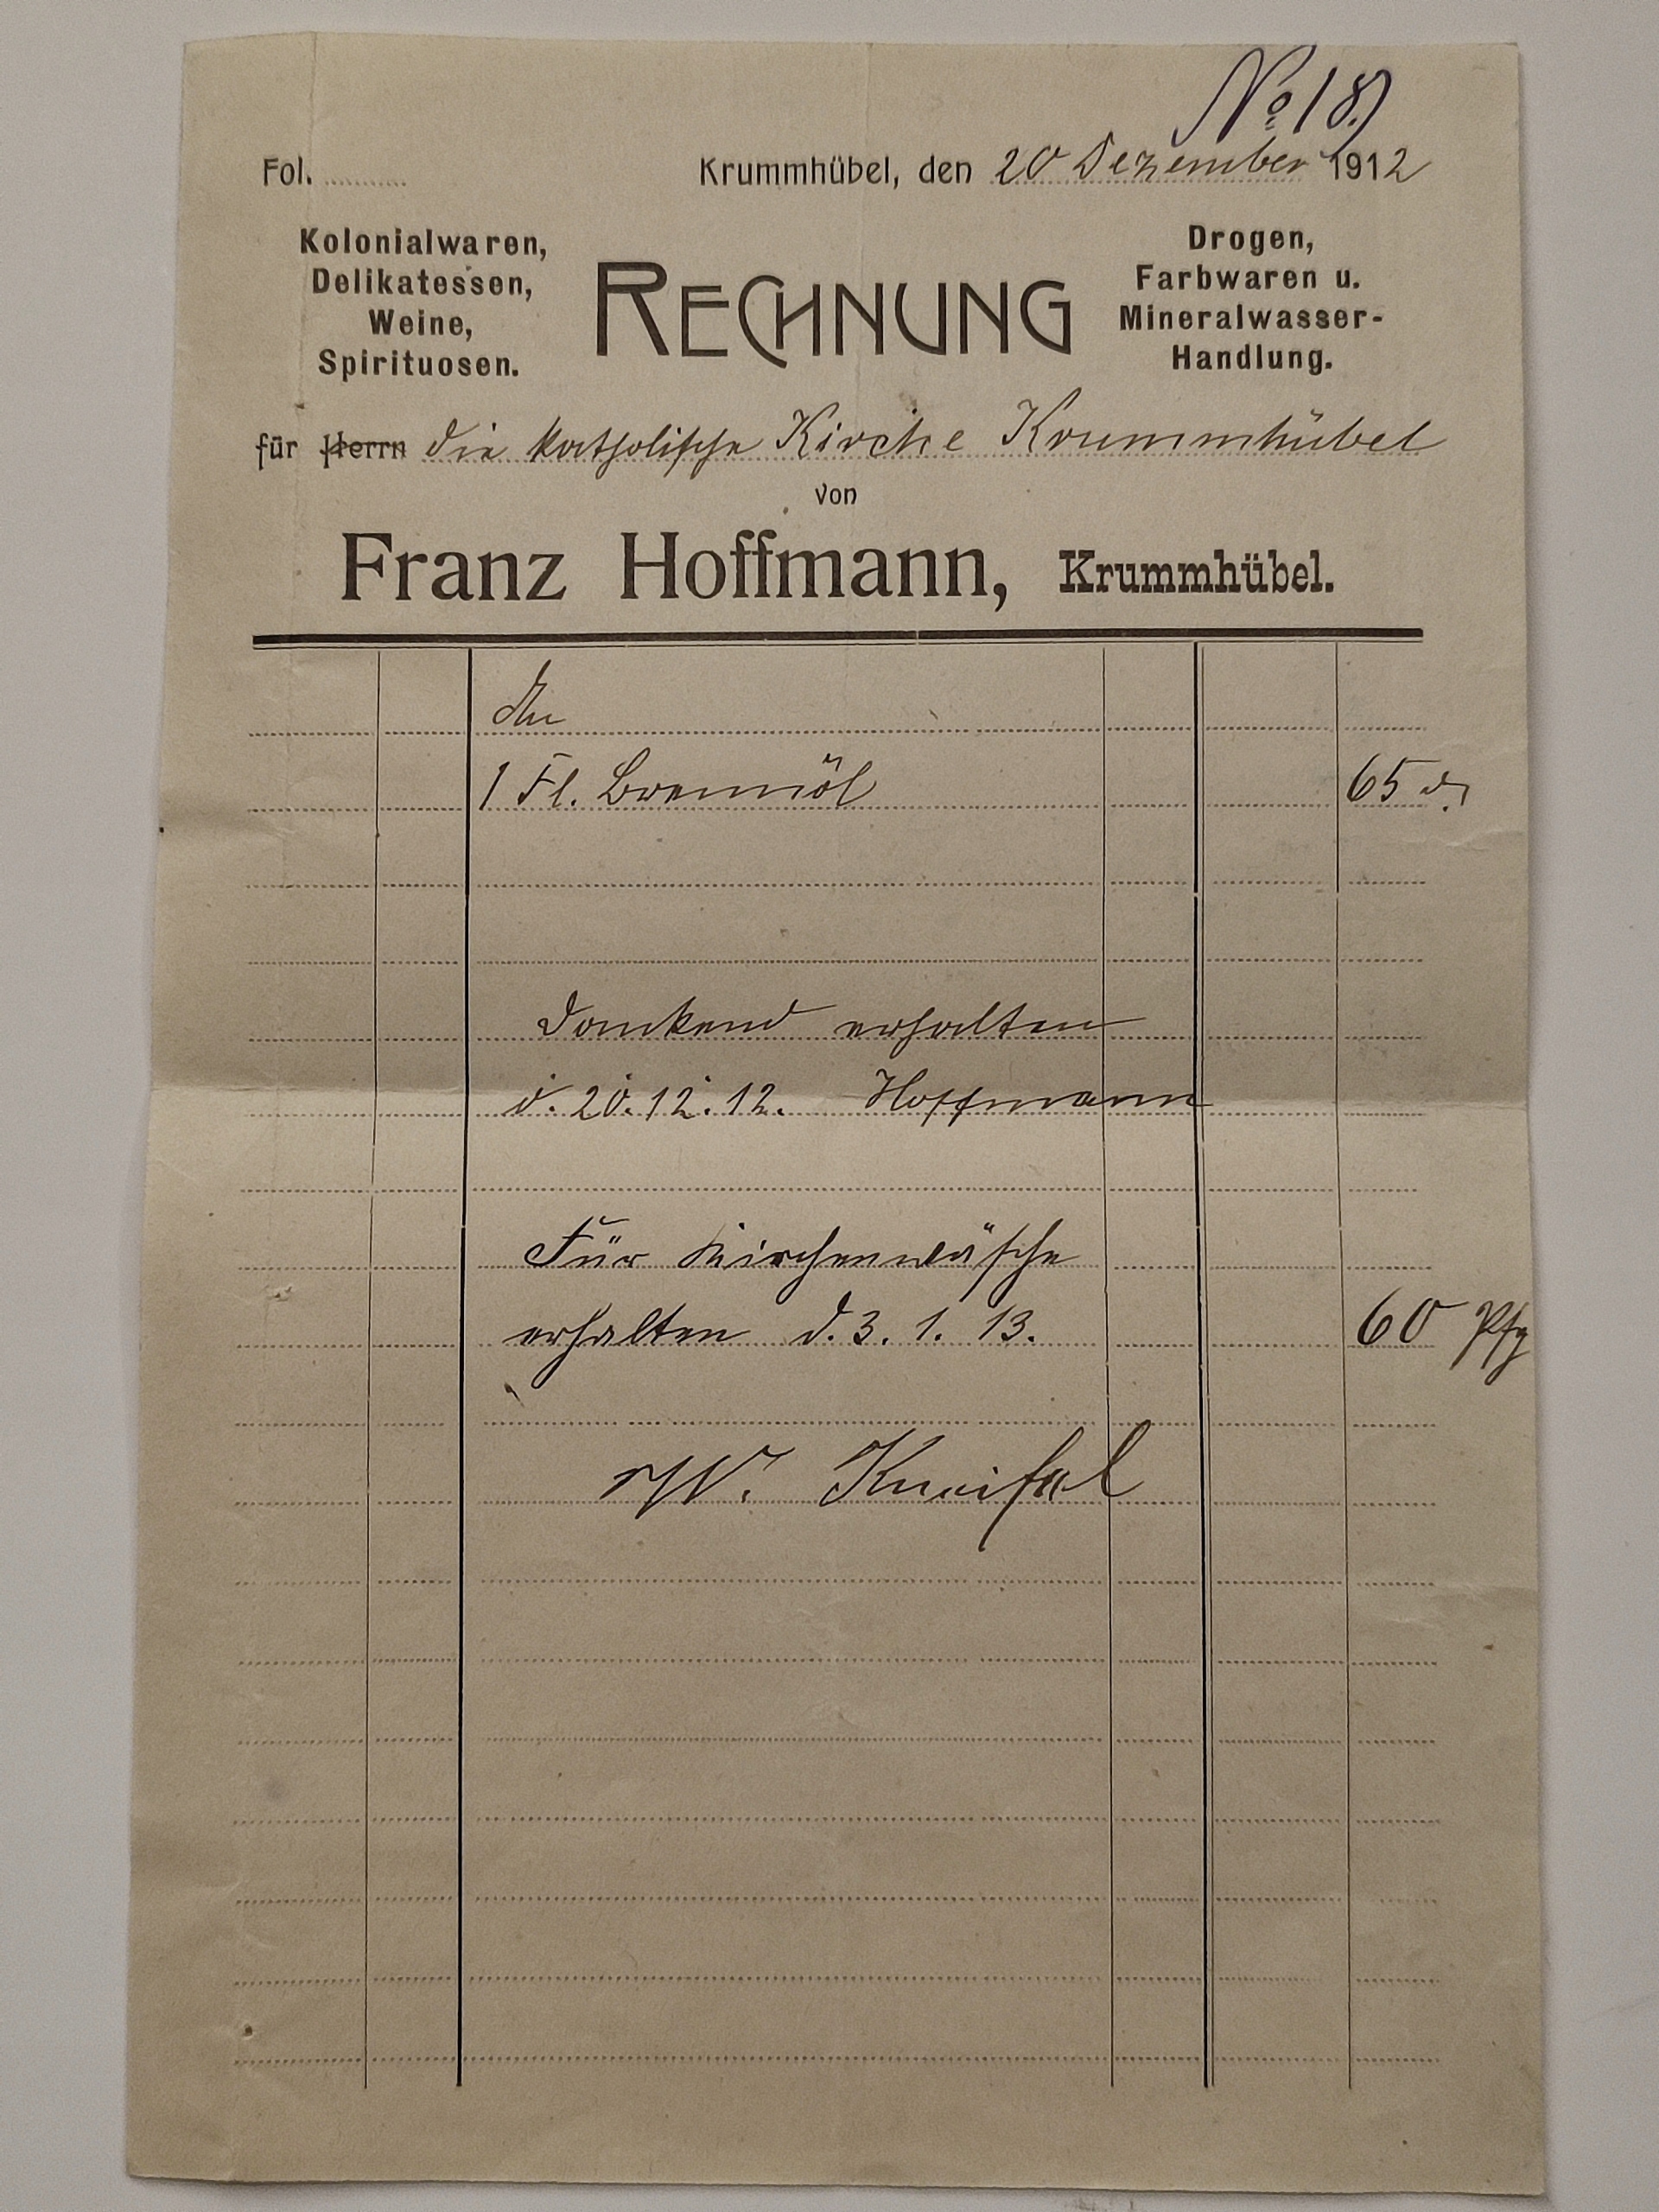 No 18.)
Fol. .......... Krummhübel, den 20 Dezember 1912
Kolonialwaren,
Delikatessen,
Weine,
Spirituosen.
RECHNUNG
Drogen,
Farbwaren u.
Mineralwasser-
Handlung.
für Herrn die katholische Kirche Krummhübel
von
Franz Hoffmann, Krummhübel.
An
1 Fl. Brennöl 65 ₰
Dankend erhalten
d. 20. 12. 12. Hoffmann
Für Kirchenwäsche
erhalten d. 3. 1. 13. 60 Pfg
W. Kneifel